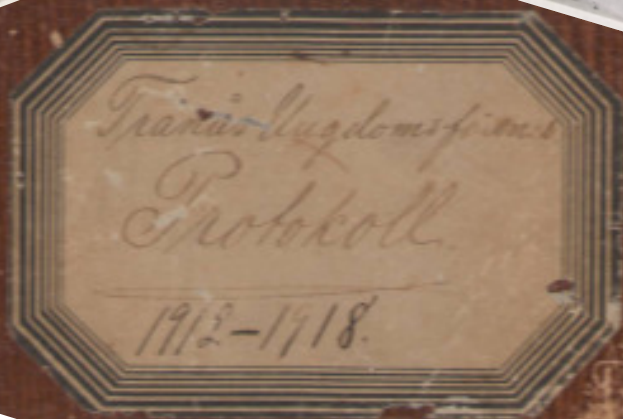 Tranås Ungdomsförenes
Protokoll.
1912-1918.